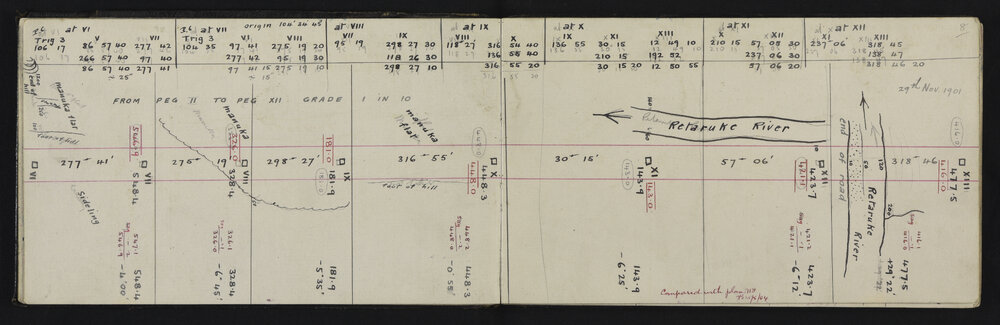 I.6 at VI
Trig 3 V VII
106 17 86 57 40 277 42
266 57 40 97 40
86 57 40 277 41
÷ 25"
I.6 at VII origin 104° 34' 45"
Trig 3 VI VIII
104 35 97 41 275 19 20
277 42 95 19 30
97 41 15 275 19 10
÷ 15"
at VIII
IX
95 19 298 27 30
118 26 30
298 27 10
at IX
X
118 27 316 54 40
136 55 40
316 55 20
at X
IX XI
136 55 30 15
210 15
30 15 20
XIII
12 49 10
192 52
12 50 55
at XI
XII
210 15 57 05 30
237 06 30
57 06 20
at XII
XIII
237 06' 318 45
138 47
318 46 20
29th Nov. 1901
FROM PEG II TO PEG XII GRADE 1 IN 10
manuka flat
manuka
manuka flat
Retaruke River
end of road
Retaruke River
foot of hill
Sideling
277° 41'
275° 19
298° 27'
316° 55'
30° 15'
57° 06'
318° 46
VI
VII
VIII
IX
X
XI
XII
XIII
546.9
548.4
326.0
328.4
181.0
181.9
448.0
448.3
143.0
143.9
421.1
423.7
416.0
477.5
10
50
120
200
547.1
546.9
548.4 -4°00'
326.1
326.0
328.4 -6°45'
181.9 -5°35'
448.2
448.0
448.3 -0°55'
143.9 -6°25'
421.2
421.1
423.7 -6°12'
416.1
416.0
477.5 +29°22'
Compared with plan